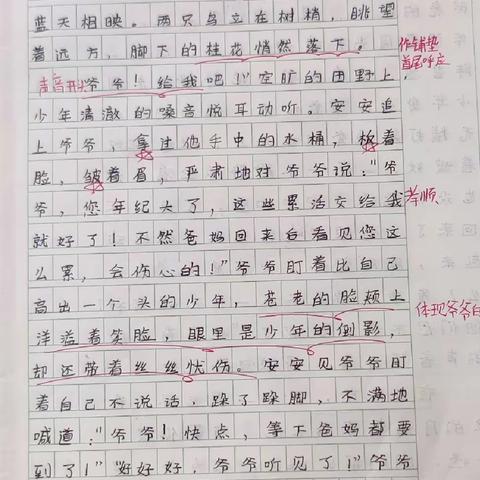 蓝天相映。两只鸟立在树梢，眺望
着远方，脚下的桂花悄然落下。
作铺垫
首尾呼应
声音开头
“爷爷！给我吧！”空旷的田野上，
少年清澈的嗓音悦耳动听。安安追
上爷爷，拿过他手中的水桶，板着
脸，皱着眉，严肃地对爷爷说：“爷
爷，您年纪大了，这些累活交给我
孝顺
就好了！不然爸妈回来后看见您这
么累，会伤心的！”爷爷盯着比自己
高出一个头的少年，苍老的脸颊上
体现爷爷
洋溢着笑脸，眼里是少年的倒影，
却还带着丝丝忧伤。安安见爷爷盯
着自己不说话，跺了跺脚，不满地
喊道：“爷爷！快点，等下爸妈都要
到了！”“好好好，爷爷听见了！”爷爷